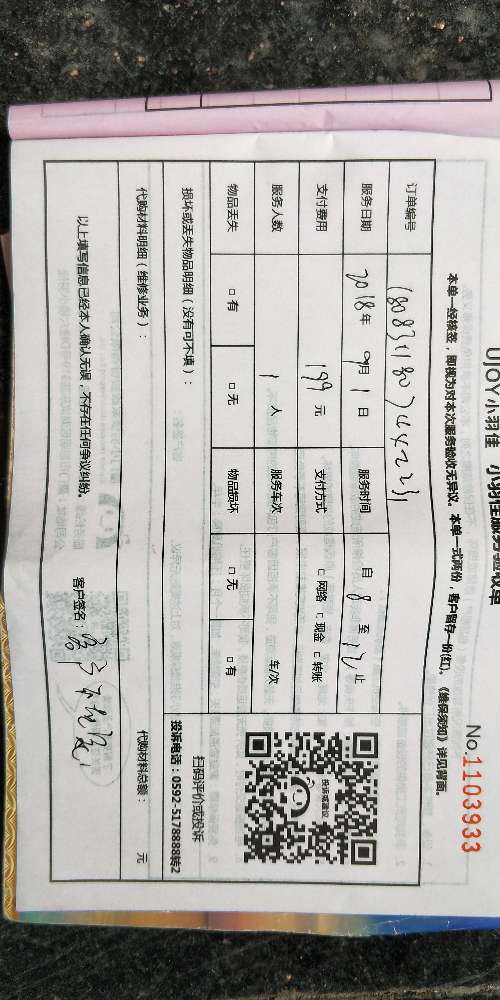 UJOY小羽佳 小羽佳服务验收单
No.1103933
本单一经核签，即视为对本次服务验收无异议。本单一式两份，客户留存一份(红)。《维保须知》详见背面。
订单编号
服务日期 2018年 9月 1日 服务时间 自 8 至 12 止
支付费用 199 元 支付方式 □ 网络 □ 现金 □ 转账
服务人数 1 人 服务车次 车/次
物品丢失 □ 有 □ 无 物品损坏 □ 无 □ 有
投诉或建议
扫码评价或投诉
投诉电话：0592-5178888转2
损坏或丢失物品明细（没有可不填）：
代购材料明细（维修业务）： 代购材料总额： 元
以上填写信息已经本人确认无误，不存在任何争议纠纷。 客户签名：